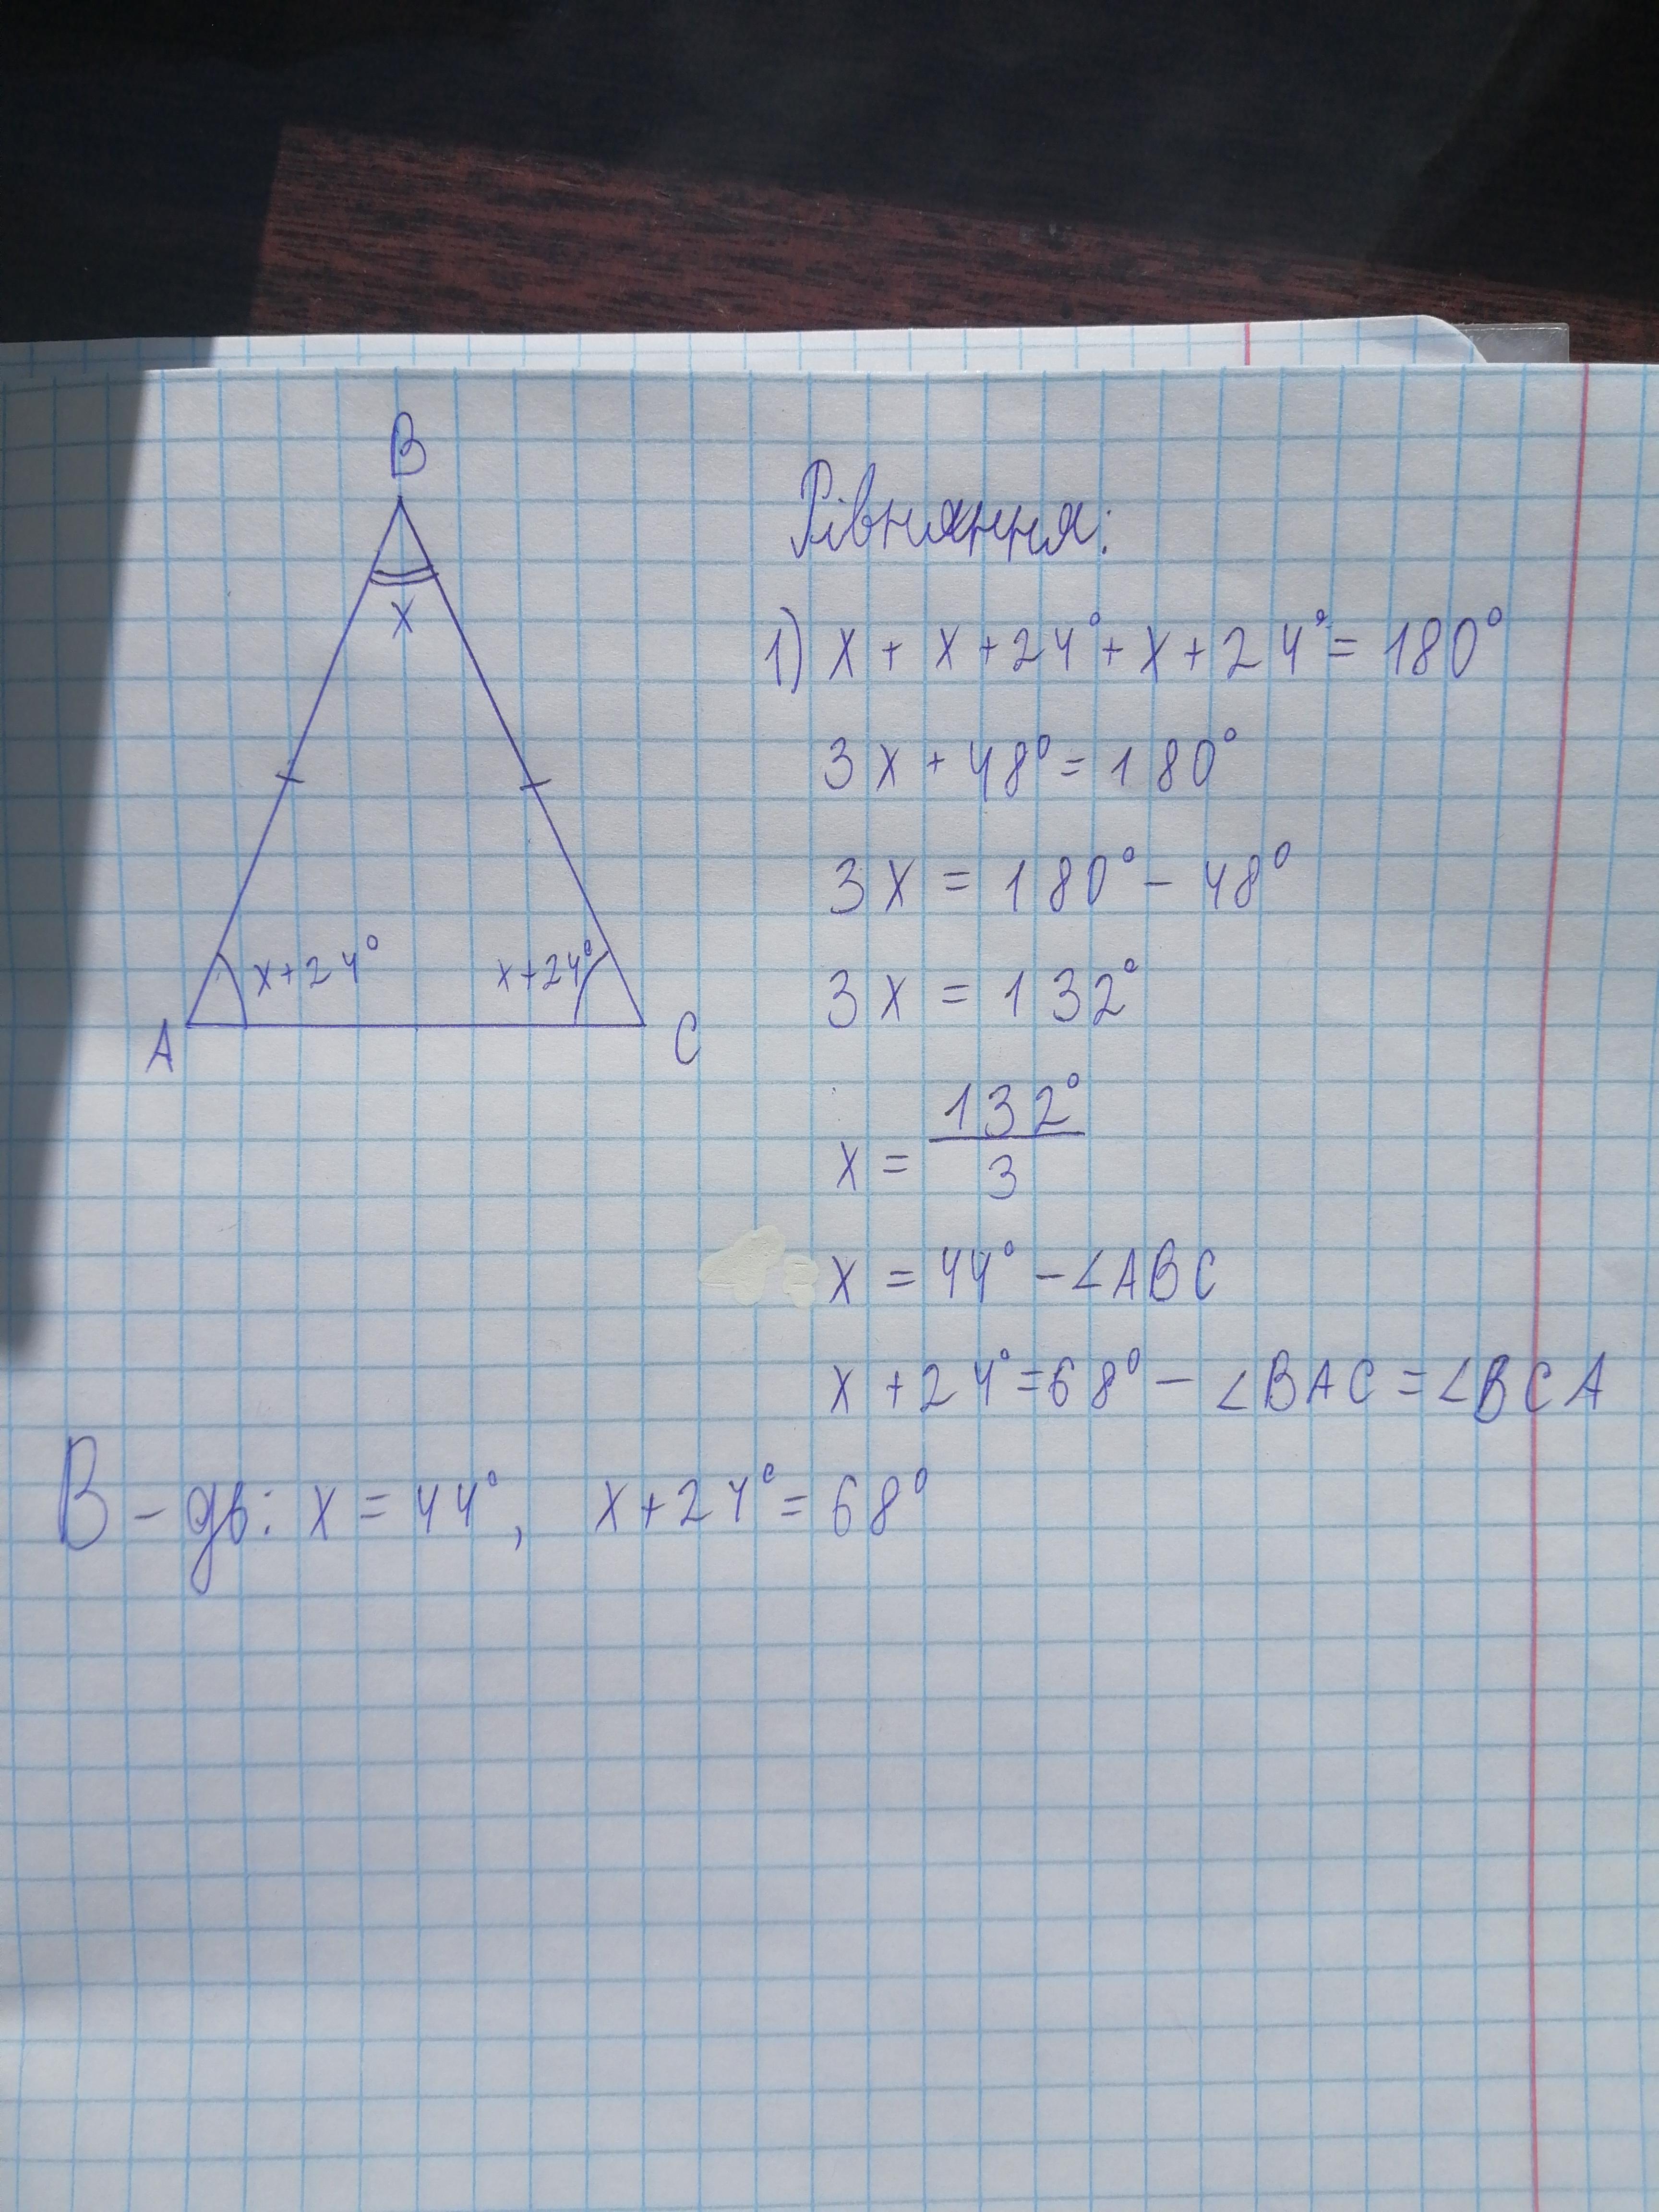 B
x
x+24°
x+24°
A
C
Рівняння:
1) x + x + 24° + x + 24° = 180°
3x + 48° = 180°
3x = 180° - 48°
3x = 132°
x = 132° / 3
x = 44° - ∠ABC
x + 24° = 68° - ∠BAC = ∠BCA
В-дь: x = 44°, x + 24° = 68°